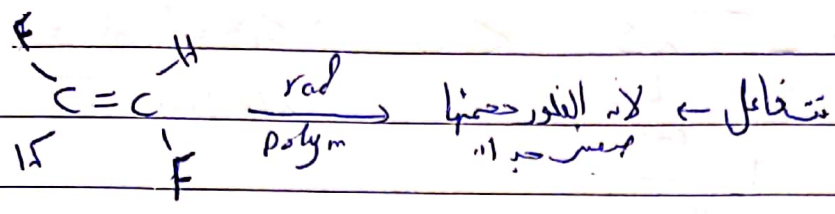 F H
C = C rad polym تتفاعل ← لأنه الفلور حجمها
صغير جدا
F